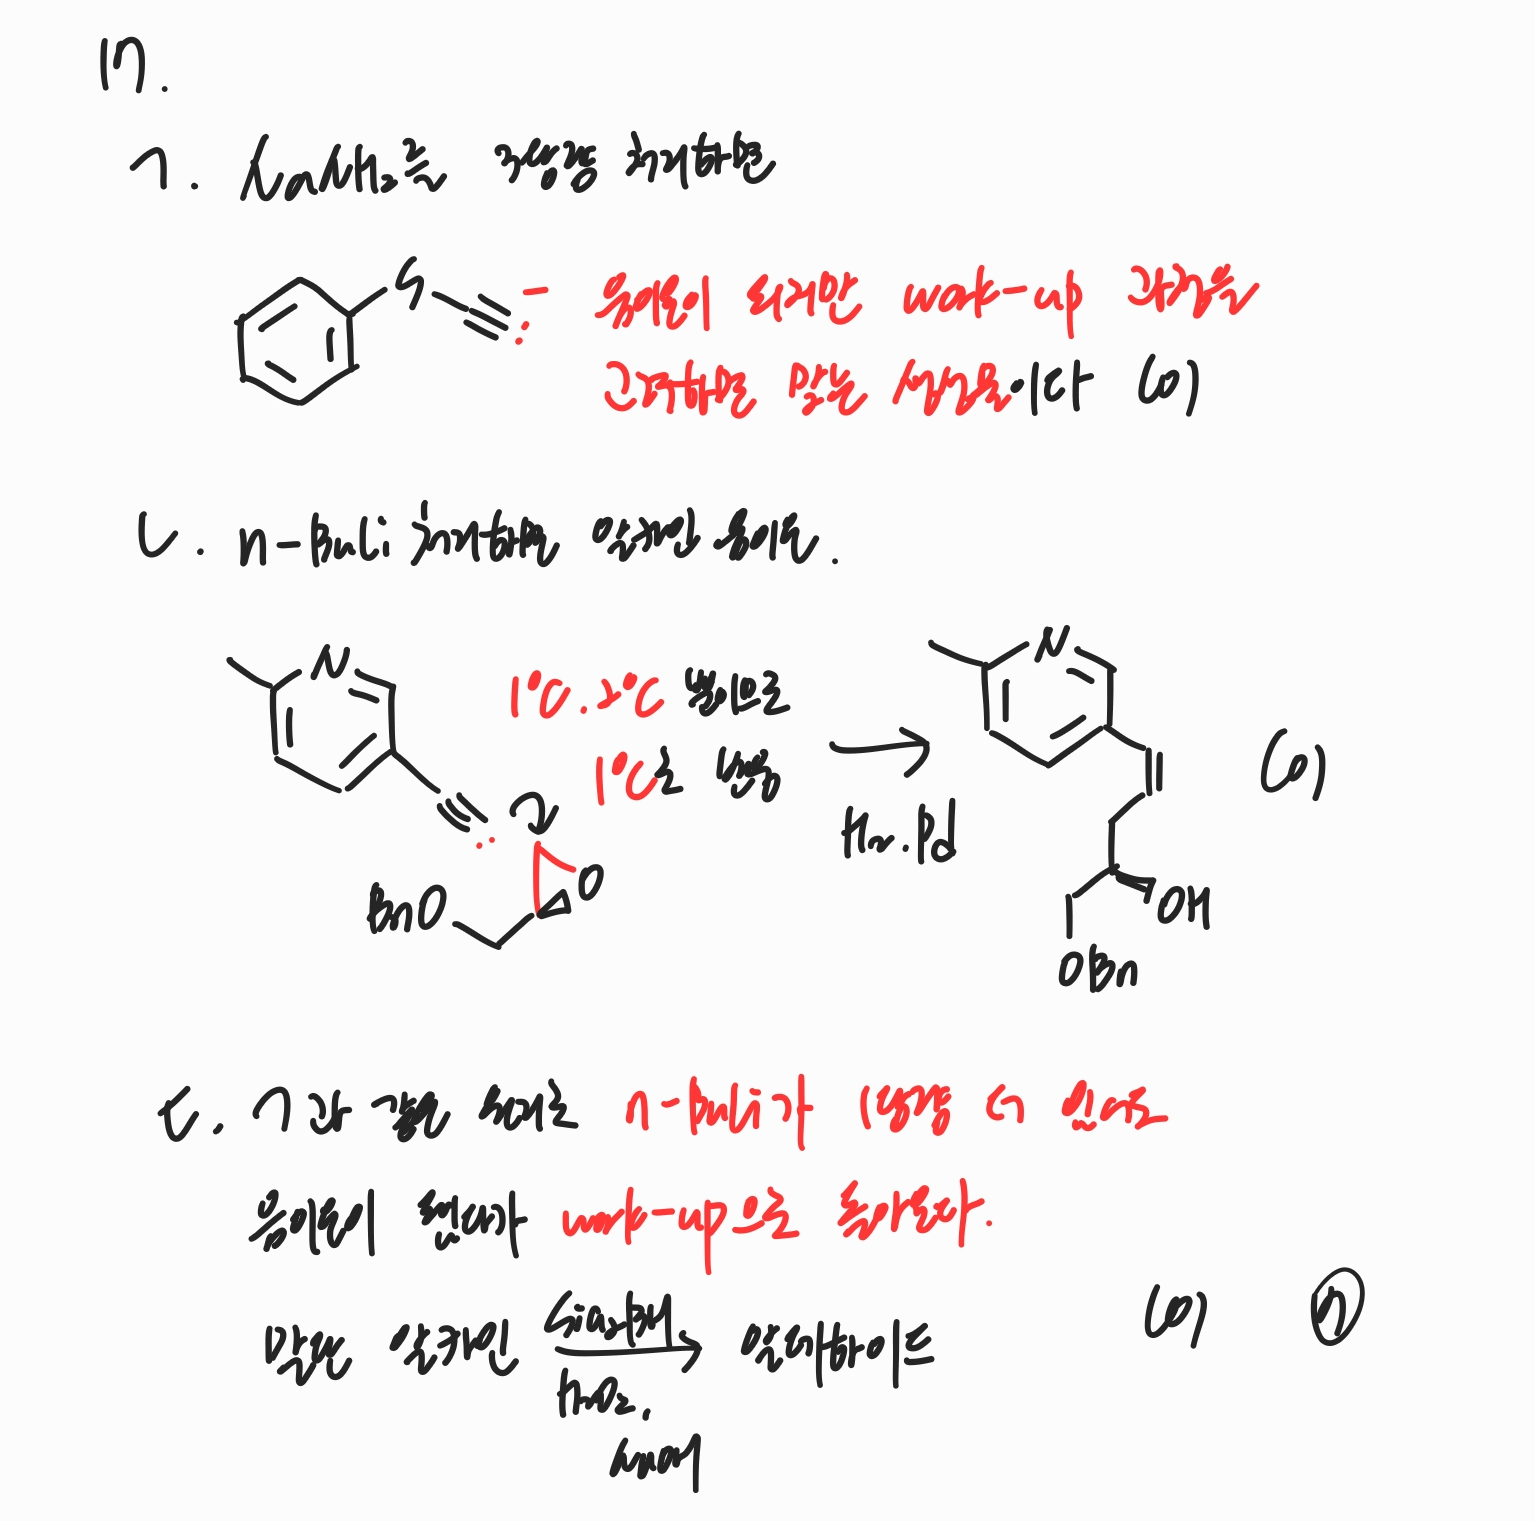 17.
ㄱ. NaNH₂를 3당량 처리하면
S
음이온이 되지만 work-up 과정을
고려하면 맞는 생성물이다 (O)
ㄴ. n-BuLi 처리하면 알카인 음이온.
N
1°C, 2°C 높이므로
1°C로 반응
BnO
O
H₂, Pd
N
OH
OBn
(O)
ㄷ. ㄱ과 같은 원리로 n-BuLi가 1당량 더 있어도
음이온이 됐다가 work-up으로 돌아온다.
말단 알카인
Sia₂BH
H₂O₂,
NaOH
알데하이드
(O)